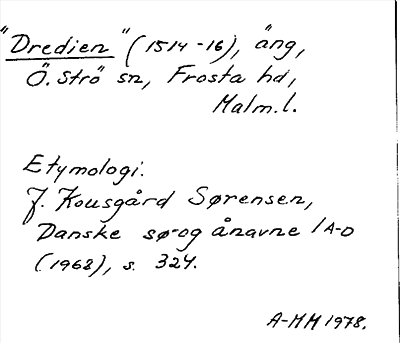 "Dredien" (1514-16), äng,
Ö. Strö sn, Frosta hd,
Malm. l.
Etymologi.
J. Kousgård Sørensen,
Danske sø-og ånavne 1 A-D
(1968), s. 324.
A-MM 1978.